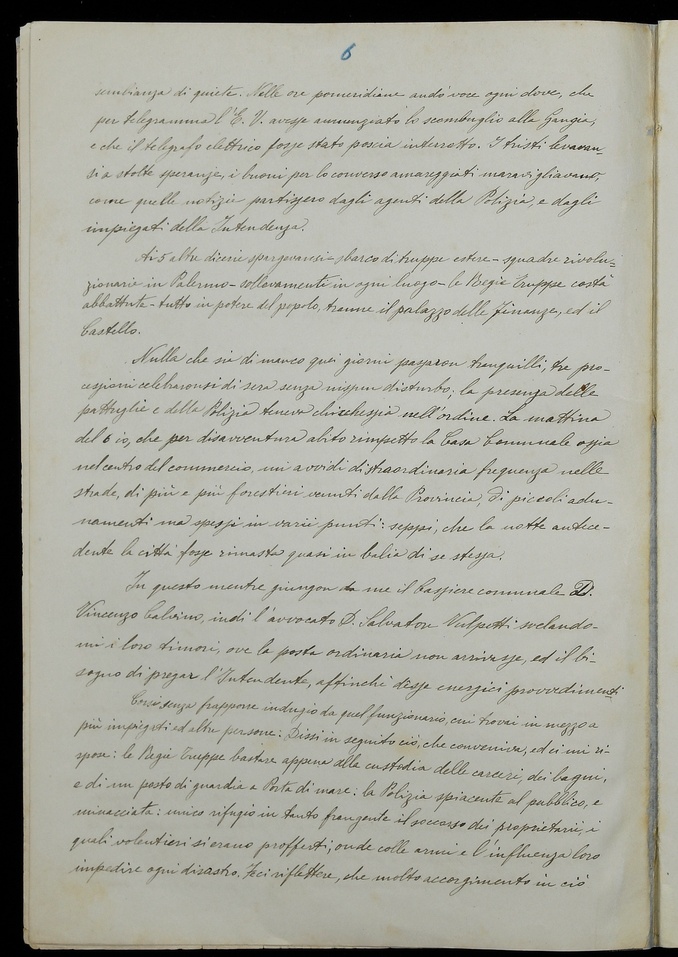 6
sembianza di quiete. Nelle ore pomeridiane andò voce ogni dove, che
per telegramma l'E. V. avesse annunziato lo scombuglio alla Gangia,
e che il telegrafo elettrico fosse stato poscia interrotto. I tristi levavan-
si a stolte speranze, i buoni per lo converso amareggiati maravigliavano,
come quelle notizie partissero dagli agenti della Polizia, e dagli
impiegati della Intendenza.
Ai 5 altre dicerie spargevansi - sbarco di truppe estere - squadre rivolu-
zionarie in Palermo - sollevamento in ogni luogo - le Regie Truppe costà
abbattute - tutto in potere del popolo, tranne il palazzo delle Finanze, ed il
Castello.
Nulla che sia di manco quei giorni passaron tranquilli; tre pro-
cessioni celebraronsi di sera senza nissun disturbo; la presenza delle
pattuglie e della Polizia teneva chicchessia nell'ordine. La mattina
del 6 io, che per disavventura abito rimpetto la Casa Comunale ossia
nel centro del commercio, mi avvidi di straordinaria frequenza nelle
strade, di più e più forestieri venuti dalla Provincia, di piccoli adu-
namenti ma spessi in varii punti: seppi, che la notte antece-
dente la città fosse rimasta quasi in balia di se stessa.
In questo mentre giungon da me il Cassiere comunale D.
Vincenzo Calvino, indi l'avvocato D. Salvatore Vulpetti svelando-
mi i loro timori, ove la posta ordinaria non arrivasse, ed il bi-
sogno di pregar l'Intendente, affinchè desse energici provvedimenti
Corsi senza frapporre indugio da quel funzionario, cui trovai in mezzo a
più impiegati ed altre persone: Dissi in seguito ciò, che conveniva, ed ei mi ri-
spose: le Regie Truppe bastare appena alla custodia delle carceri, dei bagni,
e di un posto di guardia a Porta di mare: la Polizia spiacente al pubblico, e
minacciata: unico rifugio in tanto frangente il soccorso dei proprietarii, i
quali volentieri si erano profferti; onde colle armi e l'influenza loro
impedire ogni disastro. Feci riflettere, che molto accorgimento in ciò